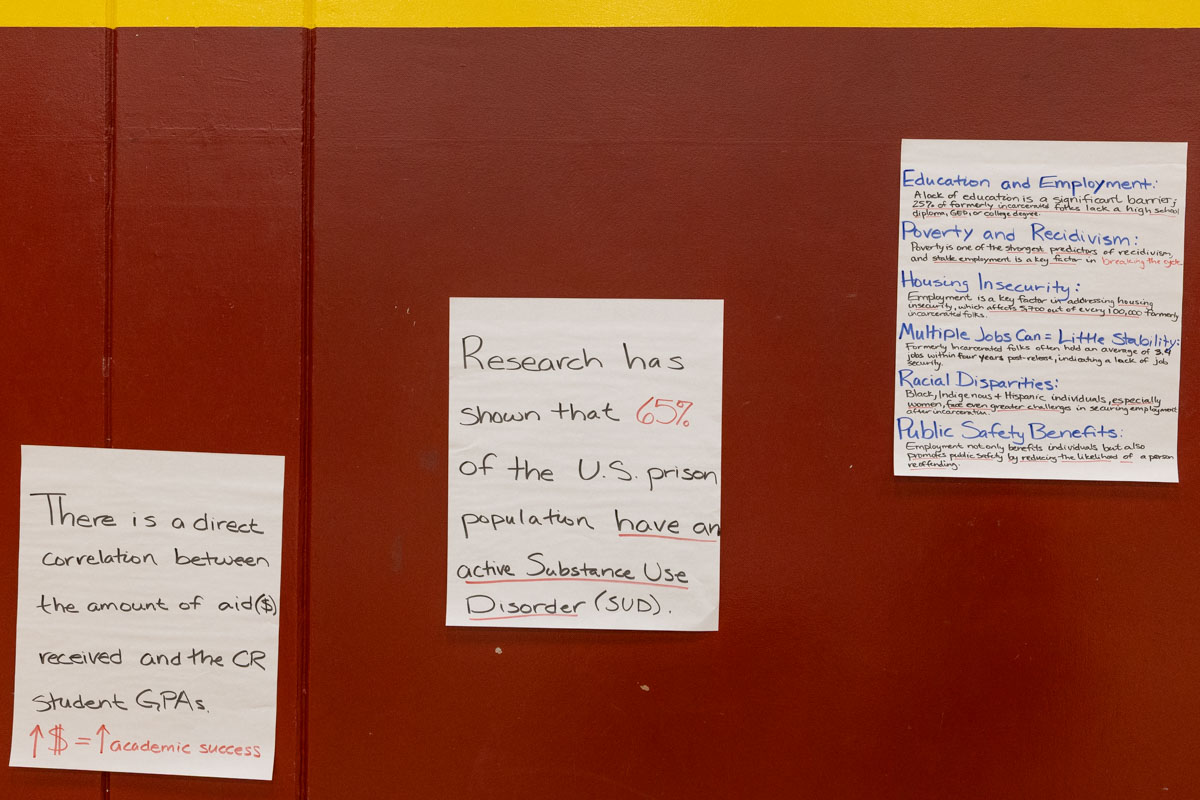 There is a direct
correlation between
the amount of aid($)
received and the CR
student GPAs.
↑$ = ↑academic success
Research has
shown that 65%
of the U.S. prison
population have an
active Substance Use
Disorder (SUD).
Education and Employment:
A lack of education is a significant barrier;
25% of formerly incarcerated folks lack a high school
diploma, GED, or college degree.
Poverty and Recidivism:
Poverty is one of the strongest predictors of recidivism,
and stable employment is a key factor in breaking the cycle
Housing Insecurity:
Employment is a key factor in addressing housing
insecurity, which affects 5,700 out of every 100,000 formerly
incarcerated folks.
Multiple Jobs Can = Little Stability:
Formerly Incarcerated folks often hold an average of 3.4
jobs within four years post-release, indicating a lack of job
security.
Racial Disparities:
Black, Indigenous + Hispanic individuals, especially
women, face even greater challenges in securing employment
after incarceration.
Public Safety Benefits:
Employment not only benefits individuals but also
promotes public safety by reducing the likelihood of a person
reoffending.